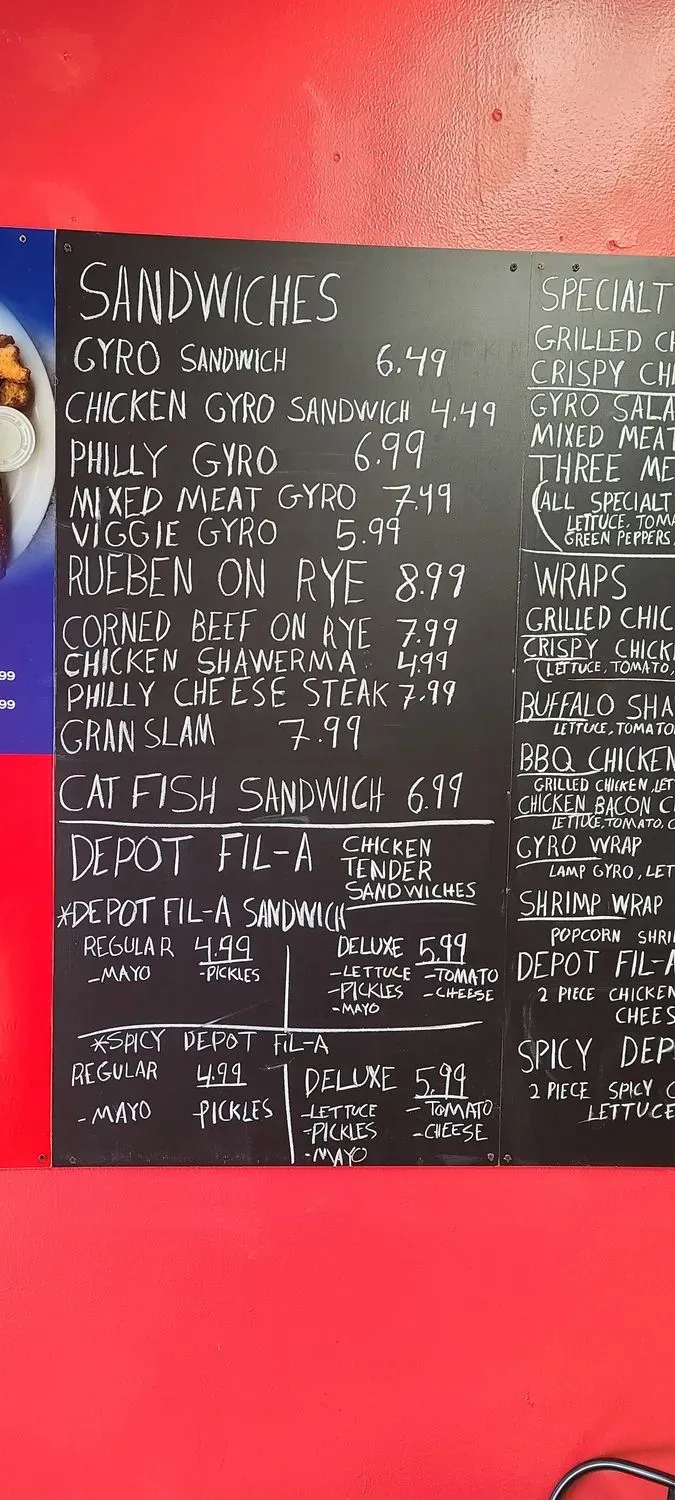 SANDWICHES
GYRO SANDWICH 6.49
CHICKEN GYRO SANDWICH 4.49
PHILLY GYRO 6.99
MIXED MEAT GYRO 7.49
VIGGIE GYRO 5.99
RUEBEN ON RYE 8.99
CORNED BEEF ON RYE 7.99
CHICKEN SHAWERMA 4.99
PHILLY CHEESE STEAK 7.99
GRAN SLAM 7.99
CAT FISH SANDWICH 6.99
DEPOT FIL-A CHICKEN
TENDER
SANDWICHES
*DEPOT FIL-A SANDWICH
REGULAR 4.99
-MAYO -PICKLES
DELUXE 5.99
-LETTUCE -TOMATO
-PICKLES -CHEESE
-MAYO
*SPICY DEPOT FIL-A
REGULAR 4.99
-MAYO -PICKLES
DELUXE 5.99
-LETTUCE -TOMATO
-PICKLES -CHEESE
-MAYO
SPECIALT
GRILLED CH
CRISPY CHI
GYRO SALA
MIXED MEAT
THREE ME
(ALL SPECIALT
LETTUCE, TOMA
GREEN PEPPERS,
WRAPS
GRILLED CHIC
CRISPY CHICK
(LETTUCE, TOMATO,
BUFFALO SHA
LETTUCE, TOMATO
BBQ CHICKEN
GRILLED CHICKEN, LET
CHICKEN BACON C
LETTUCE, TOMATO, C
GYRO WRAP
LAMP GYRO, LET
SHRIMP WRAP
POPCORN SHRI
DEPOT FIL-A
2 PIECE CHICKEN
CHEES
SPICY DEP
2 PIECE SPICY C
LETTUCE
99
99